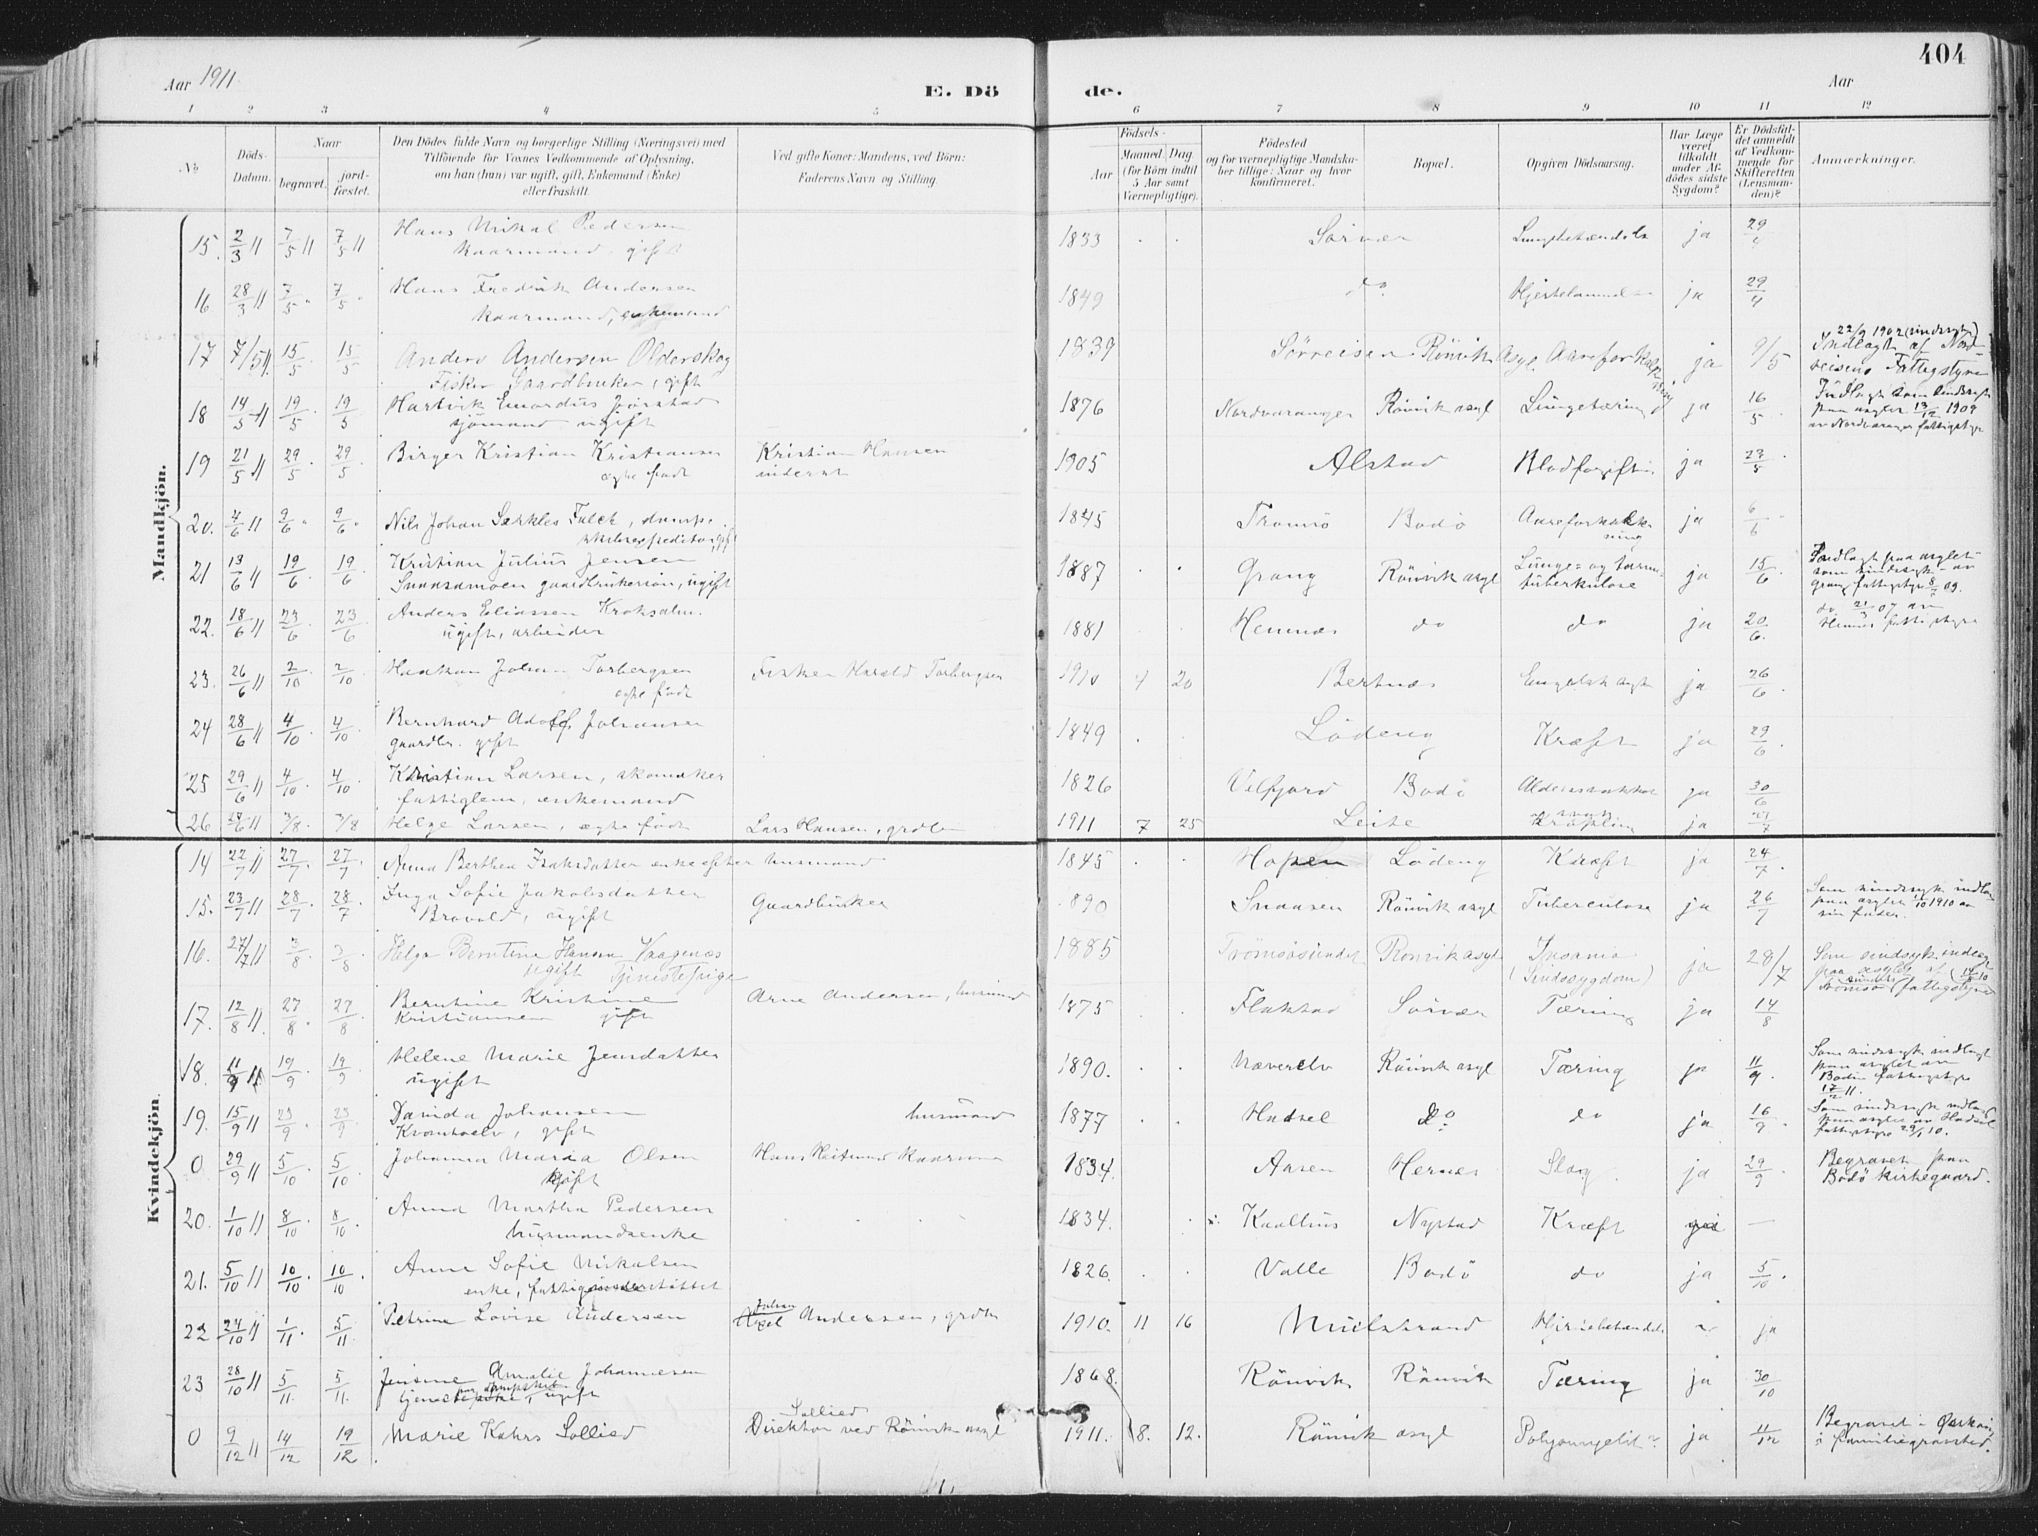 404
Aar 1911
E. Dö
de.
Aar
1 2 3 4 5 6 7 8 9 10 11 12
No
Döds-
Datum.
Naar
begravet.
jord-
fæstet.
Den Dödes fulde Navn og borgerlige Stilling (Næringsvei) med
Tilföiende for Voxnes Vedkommende af Oplysning,
om han (hun) var ugift, gift, Enkemand (Enke)
eller fraskilt.
Ved gifte Koner: Mandens, ved Börn:
Faderens Navn og Stilling.
Födsels-
Aar
Maaned.
Dag.
(for Börn indtil
5 Aar samt
Værnepligtige).
Födested
og for værnepligtige Mandska-
ber tillige: Naar og hvor
konfirmeret.
Bopæl.
Opgiven Dödsaarsag.
Har Læge
været
tilkaldt
under Af-
dödes sidste
Sygdom?
Er Dödsfal-
det anmeldt
af Vedkom-
mende for
Skifteretten
(Lensman-
den)?
Anmærkninger.
Mandkjön.
15. 2/3 11 7/5 11 7/5 11 Hans Mikal Pedersen 1833 Sørvær ja 29/4
kaarmand. gift
16 28/3 11 7/5 7/5 Hans Fredrik Andersen 1849 do ja 29/4
kaarmand, enkemand
17 7/5 11 15/5 15/5 Anders Andersen Olderskog 1839 Sørreisen Rönvik Asyl Aareforkalkning ja 9/5 22/9 1902 (sindssyk) Indlagt af Nord-
Fisker Gaardbruker, gift reisens Fattigstyre
18 14/5 11 19/5 19/5 Hartvik Jørstad 1876 Nordvaranger Rönvik asyl Lungetæring ja 16/5 Indlagt som sindssyk
sjömand ugift paa asylet 13/12 1909
av Nordvaranger fattigstyre
19 21/5 11 29/5 29/5 Birger Kristian Kristiansen Kristian Hansen 1905 Alstad Blodforgiftn. ja 23/5
ægte født inderst
20. 4/6 11 9/6 9/6 Nils Johan Falck, damp- 1845 Tromsø Bodö Aareforkalk- ja 6/6
ning
21 13/6 11 19/6 19/6 Kristian Julius Jensen 1887 Grong Rönvik asyl Lunge- og tarm- ja 15/6 Indlagt paa asylet
Snaasamoen ugift tuberkulose som sindssyk av
Grong fattigstyre 09.
22. 18/6 11 23/6 23/6 Anders Eliassen 1881 Hemnes do do ja 20/6. do 21/3 07 av
ugift, arbeider Hemnes fattigstyre
23. 26/6 11 2/10 2/10 Haakon Johan Torbergsen Fisker Harald Torbergsen 1910 4 20 Bertnes Engelsk syke ja 26/6
ægte født
24 28/6 11 4/10 4/10 Bernhard Adolf Johansen 1849 Löding Kræft ja 29/6
gaardbr. gift
25 29/6 11 4/10 4/10 Kristian Larsen, skomaker 1826 Velfjord Bodö ja 30/6
fattiglem, enkemand
26 11 3/8 3/8 Helge Larsen, ægte født Lars Hansen, grdbr 1911 7 25 Leite ja 27/7
Kvindekjön.
14 22/7 11 27/7 27/7 Anna Berthea Isaksdatter enke efter husmand 1845 Hopen Löding Kræft ja 24/7
15. 23/7 11 28/7 28/7 Inga Sofie Jakobsdatter Gaardbruker 1890 Snaasen Rönvik asyl Tuberculose ja 26/7 Som sindssyk indlagt
Bravold, ugift paa asylet 1/10 1910 av
sin fader.
16. 27/7 11 3/8 3/8 Helga Berntine Hansen Vaagenes 1885 Tromsøsundet Rønvik asyl Insania ja 28/7 Som sindsyk indlagt
ugift Tjenestepige (Sindssygdom) paa asylet af
Tromsø-sundets fattigstyre
17. 12/8 11 27/8 27/8 Berntine Kristine Arne Andersen, husmand 1875 Flakstad Sørvær Tæring ja 14/8
Kristiansen gift
18. 11/9 11 19/9 19/9 Helene Marie Jensdatter 1890. Næverelv Rönvik asyl Tæring ja 11/9. Som sindssyk indlagt
ugift paa asylet av
Bodin fattigstyre
17/2 11.
19. 15/9 11 23/9 23/9 Davida Johansen husmand 1877 Hadsel do do ja 16/9 Som sindssyk indlagt
gift paa asylet av Hadsel
fattigstyre 29/1 10.
0 29/9 11 5/10 5/10 Johanna Maria Olsen Hans kaarmand 1834. Aasen Hernes Slag ja 29/9 Begravet paa
gift Bodö kirkegaard.
20. 1/10 11 8/10 8/10 Anna Martha Pedersen 1834. Nystad Kræft —
husmandsenke
21. 5/10 11 10/10 10/10 Anne Sofie Nickolsen 1826. Valle Bodö do ja 5/10
enke, fattigunderstöttet
22 24/10 11 1/11 5/11 Petrine Lovise Andersen Johan Andersen, grdbr 1910. 11 16 Mulstrand ja
23 28/10 11 5/11. 5/11. Jensine Amalie Johannesen 1868. Rönvik Rönvik Tæring ja 30/10
ugift
0 9/12 11 14/12 19/12 Marie Kahrs Sollied Sollied Direktör ved Rönvik asyl 1911. 8. 12. Rönvik asyl ja 11/12 Begravet i
i familiegravsted.